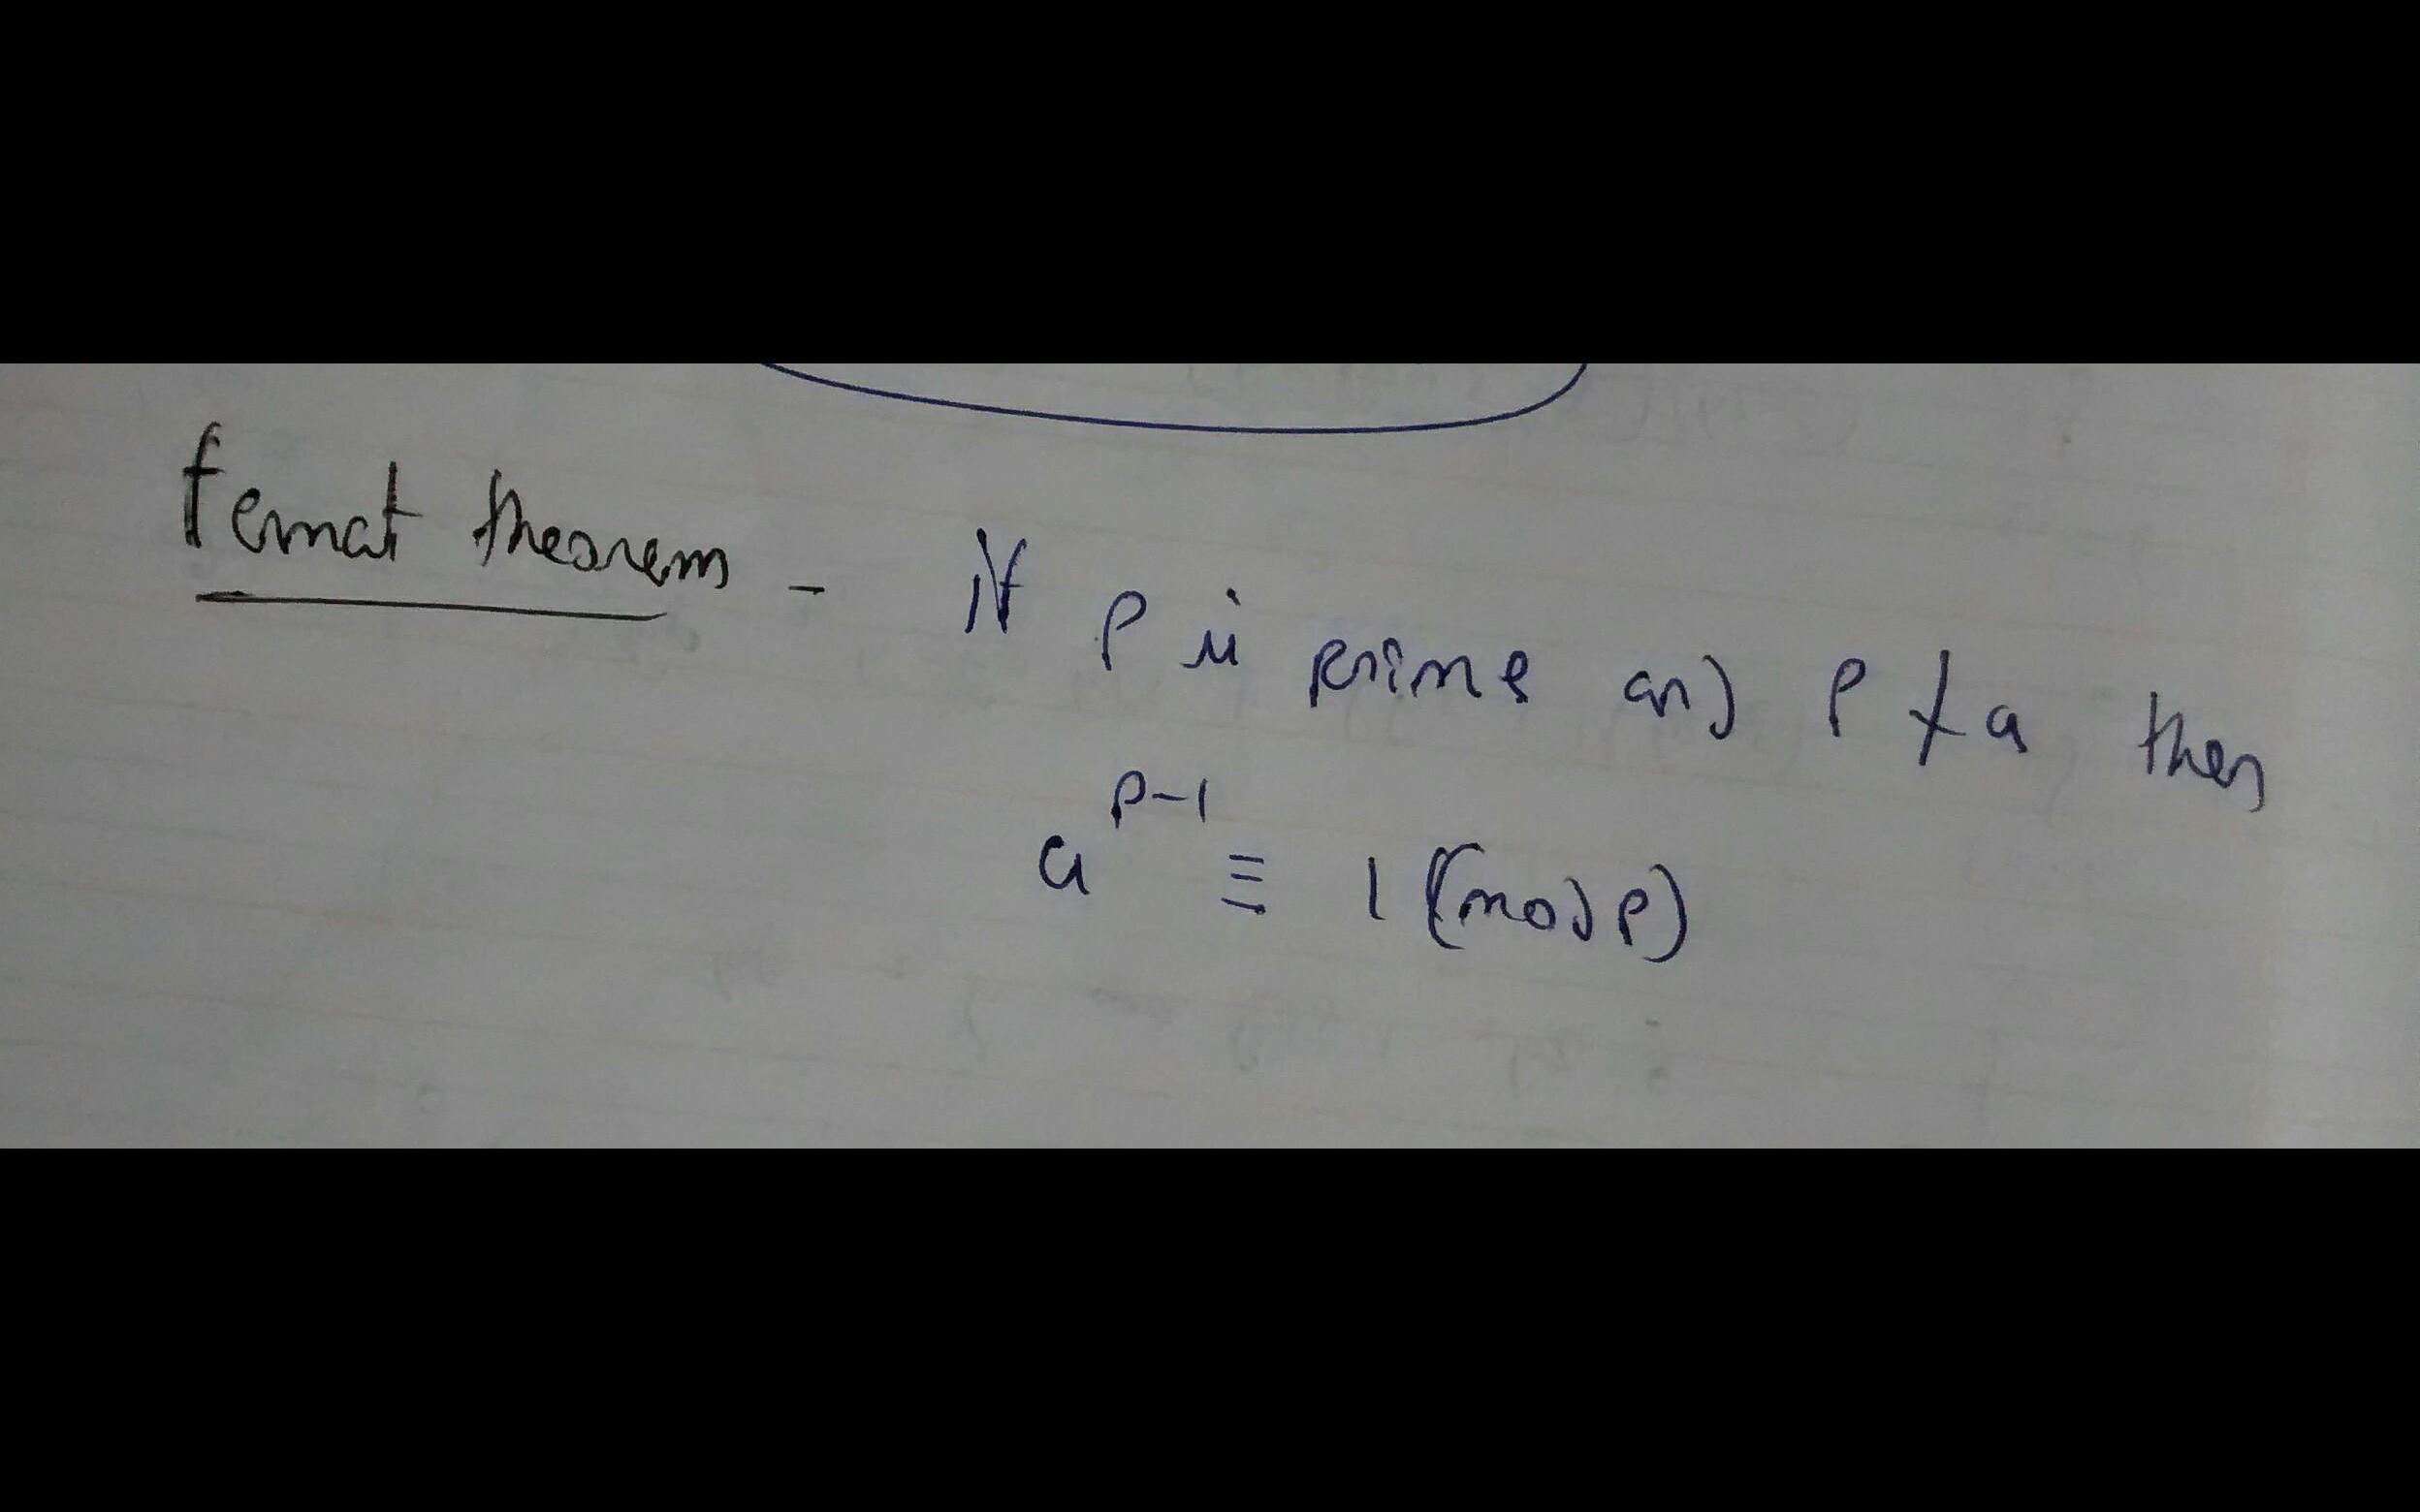 fermat theorem - if p is prime and p ∤ a then
a^{p-1} ≡ 1 (mod p)